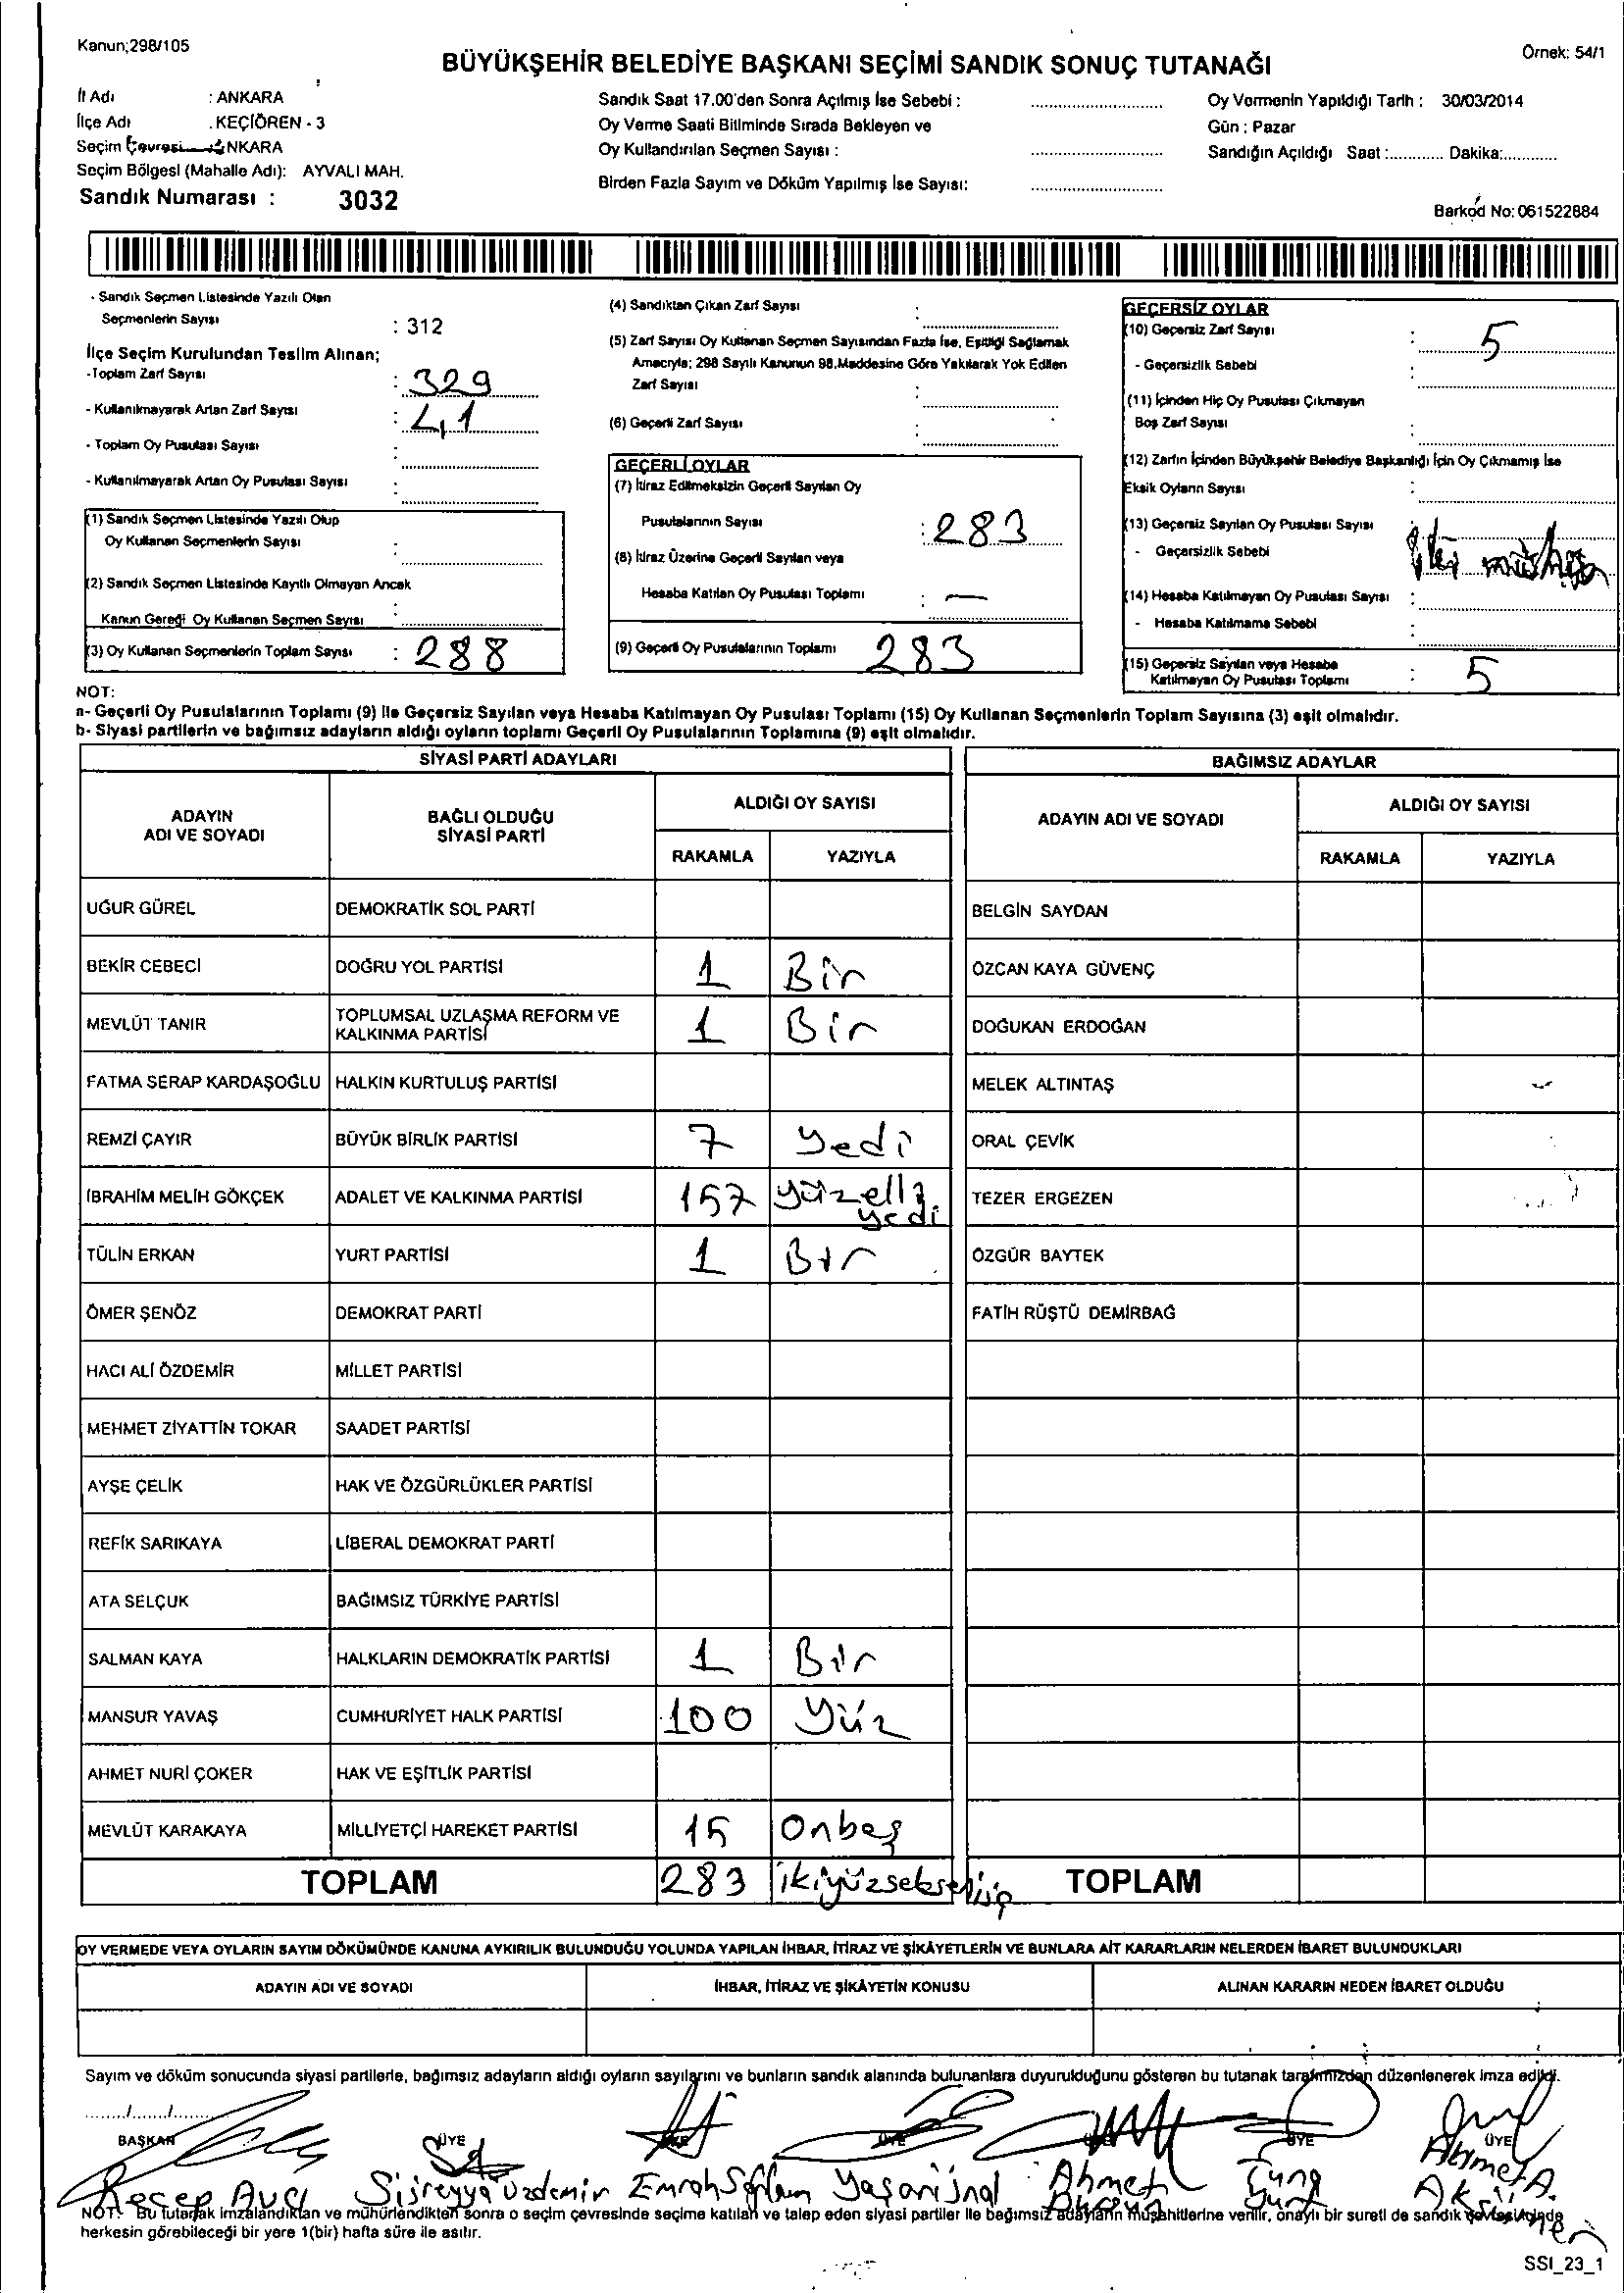 Kanun;298/105
Örnek: 54/1
BÜYÜKŞEHİR BELEDİYE BAŞKANI SEÇİMİ SANDIK SONUÇ TUTANAĞI
İl Adı : ANKARA
İlçe Adı : KEÇİÖREN - 3
Seçim Çevresi : ANKARA
Seçim Bölgesi (Mahalle Adı): AYVALI MAH.
Sandık Numarası : 3032
Sandık Saat 17.00'den Sonra Açılmış İse Sebebi :
Oy Verme Saati Bitiminde Sırada Bekleyen ve
Oy Kullandırılan Seçmen Sayısı :
Birden Fazla Sayım ve Döküm Yapılmış İse Sayısı:
Oy Vermenin Yapıldığı Tarih : 30/03/2014
Gün : Pazar
Sandığın Açıldığı Saat :............ Dakika:............
Barkod No: 061522884
- Sandık Seçmen Listesinde Yazılı Olan
Seçmenlerin Sayısı : 312
İlçe Seçim Kurulundan Teslim Alınan;
-Toplam Zarf Sayısı : 329
- Kullanılmayarak Artan Zarf Sayısı : 41
- Toplam Oy Pusulası Sayısı :
- Kullanılmayarak Artan Oy Pusulası Sayısı :
(1) Sandık Seçmen Listesinde Yazılı Olup
Oy Kullanan Seçmenlerin Sayısı :
(2) Sandık Seçmen Listesinde Kayıtlı Olmayan Ancak
Kanun Gereği Oy Kullanan Seçmen Sayısı :
(3) Oy Kullanan Seçmenlerin Toplam Sayısı : 288
(4) Sandıktan Çıkan Zarf Sayısı :
(5) Zarf Sayısı Oy Kullanan Seçmen Sayısından Fazla İse, Eşitliği Sağlamak
Amacıyla; 298 Sayılı Kanunun 98.Maddesine Göre Yakılarak Yok Edilen
Zarf Sayısı :
(6) Geçerli Zarf Sayısı :
GEÇERLİ OYLAR
(7) İtiraz Edilmeksizin Geçerli Sayılan Oy
Pusulalarının Sayısı : 283
(8) İtiraz Üzerine Geçerli Sayılan veya
Hesaba Katılan Oy Pusulası Toplamı : —
(9) Geçerli Oy Pusulalarının Toplamı 283
GEÇERSİZ OYLAR
(10) Geçersiz Zarf Sayısı : 5
- Geçersizlik Sebebi
(11) İçinden Hiç Oy Pusulası Çıkmayan
Boş Zarf Sayısı :
(12) Zarfın İçinden Büyükşehir Belediye Başkanlığı İçin Oy Çıkmamış İse
Eksik Oyların Sayısı :
(13) Geçersiz Sayılan Oy Pusulası Sayısı :
- Geçersizlik Sebebi
(14) Hesaba Katılmayan Oy Pusulası Sayısı :
- Hesaba Katılmama Sebebi :
(15) Geçersiz Sayılan veya Hesaba
Katılmayan Oy Pusulası Toplamı : 5
NOT:
a- Geçerli Oy Pusulalarının Toplamı (9) ile Geçersiz Sayılan veya Hesaba Katılmayan Oy Pusulası Toplamı (15) Oy Kullanan Seçmenlerin Toplam Sayısına (3) eşit olmalıdır.
b- Siyasi partilerin ve bağımsız adayların aldığı oyların toplamı Geçerli Oy Pusulalarının Toplamına (9) eşit olmalıdır.
SİYASİ PARTİ ADAYLARI BAĞIMSIZ ADAYLAR
ADAYIN ADI VE SOYADI
BAĞLI OLDUĞU SİYASİ PARTİ
ALDIĞI OY SAYISI
RAKAMLA YAZIYLA
ADAYIN ADI VE SOYADI
ALDIĞI OY SAYISI
RAKAMLA YAZIYLA
UĞUR GÜREL DEMOKRATİK SOL PARTİ BELGİN SAYDAN
BEKİR CEBECİ DOĞRU YOL PARTİSİ 1 Bir ÖZCAN KAYA GÜVENÇ
MEVLÜT TANIR TOPLUMSAL UZLAŞMA REFORM VE KALKINMA PARTİSİ 1 Bir DOĞUKAN ERDOĞAN
FATMA SERAP KARDAŞOĞLU HALKIN KURTULUŞ PARTİSİ MELEK ALTINTAŞ
REMZİ ÇAYIR BÜYÜK BİRLİK PARTİSİ 7 Yedi ORAL ÇEVİK
İBRAHİM MELİH GÖKÇEK ADALET VE KALKINMA PARTİSİ 157 yüzelli yedi TEZER ERGEZEN
TÜLİN ERKAN YURT PARTİSİ 1 Bir ÖZGÜR BAYTEK
ÖMER ŞENÖZ DEMOKRAT PARTİ FATİH RÜŞTÜ DEMİRBAĞ
HACI ALİ ÖZDEMİR MİLLET PARTİSİ
MEHMET ZİYATTİN TOKAR SAADET PARTİSİ
AYŞE ÇELİK HAK VE ÖZGÜRLÜKLER PARTİSİ
REFİK SARIKAYA LİBERAL DEMOKRAT PARTİ
ATA SELÇUK BAĞIMSIZ TÜRKİYE PARTİSİ
SALMAN KAYA HALKLARIN DEMOKRATİK PARTİSİ 1 Bir
MANSUR YAVAŞ CUMHURİYET HALK PARTİSİ 100 Yüz
AHMET NURİ ÇOKER HAK VE EŞİTLİK PARTİSİ
MEVLÜT KARAKAYA MİLLİYETÇİ HAREKET PARTİSİ 15 Onbeş
TOPLAM 283 ikiyüzseksenüç TOPLAM
OY VERMEDE VEYA OYLARIN SAYIM DÖKÜMÜNDE KANUNA AYKIRILIK BULUNDUĞU YOLUNDA YAPILAN İHBAR, İTİRAZ VE ŞİKÂYETLERİN VE BUNLARA AİT KARARLARIN NELERDEN İBARET BULUNDUKLARI
ADAYIN ADI VE SOYADI İHBAR, İTİRAZ VE ŞİKÂYETİN KONUSU ALINAN KARARIN NEDEN İBARET OLDUĞU
Sayım ve döküm sonucunda siyasi partilerle, bağımsız adayların aldığı oyların sayılarını ve bunların sandık alanında bulunanlara duyurulduğunu gösteren bu tutanak tarafımızdan düzenlenerek imza edildi.
....../....../......
BAŞKAN ÜYE ÜYE ÜYE ÜYE ÜYE ÜYE
Recep Avcı Emrah Sağlam Yaşar Ünal Ahmet Ahmet A.
NOT: Bu tutanak imzalandıktan ve mühürlendikten sonra o seçim çevresinde seçime katılan ve talep eden siyasi partiler ile bağımsız adayların müşahitlerine verilir, onaylı bir sureti de sandık çevresi içinde
herkesin görebileceği bir yere 1(bir) hafta süre ile asılır.
SSI_23_1